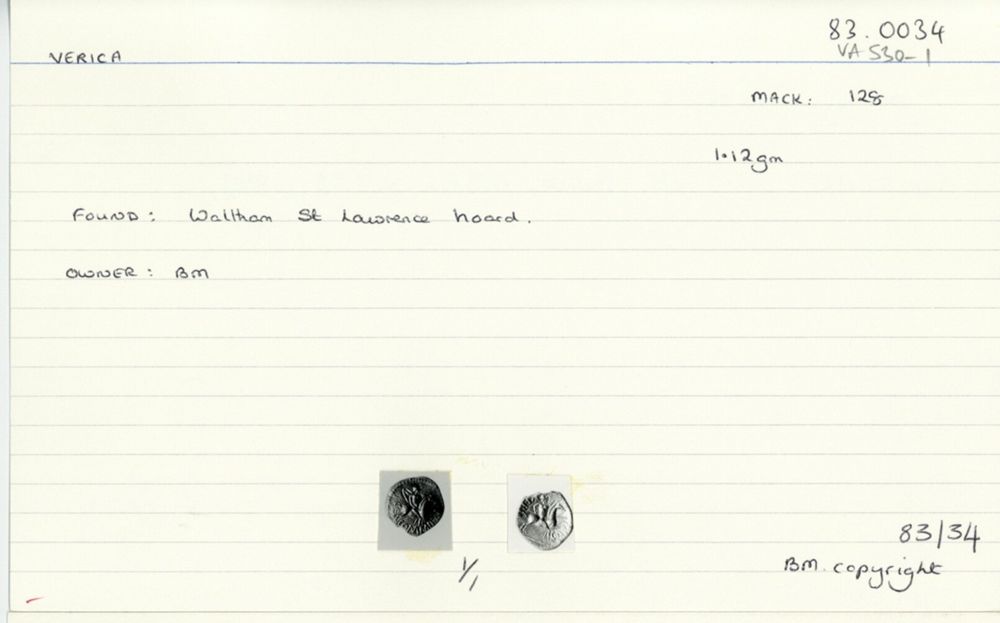 83.0034
VA 530-1
VERICA
MACK: 128
1.12gm
FOUND: Waltham St Lawrence hoard.
OWNER: BM
1/1
83/34
BM. copyright